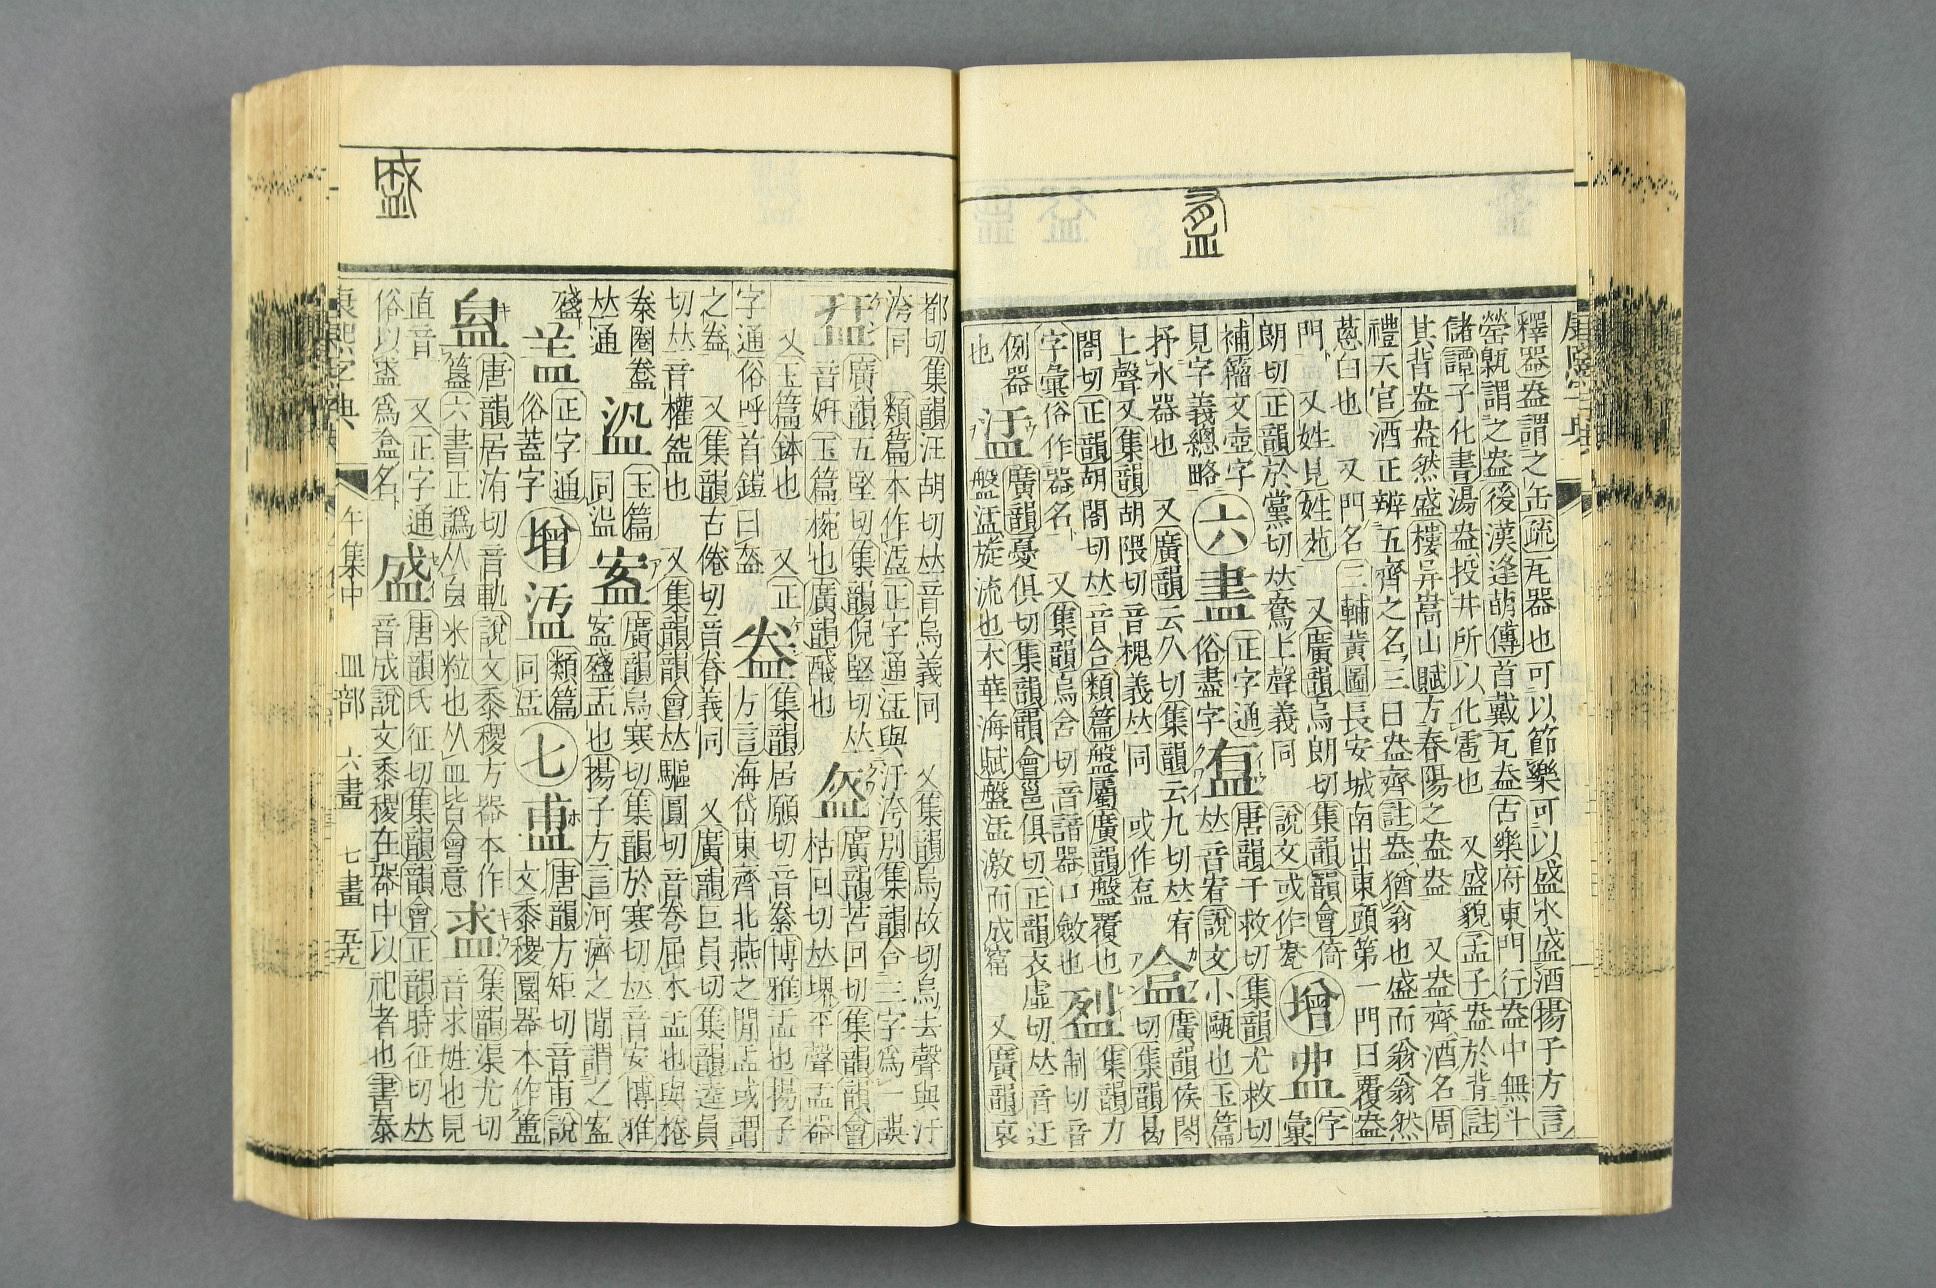 康熙字典
釋器盎謂之缶疏瓦器也可以節樂可以盛水盛酒揚子方言
罃甈謂之盎後漢逢萌傳首戴瓦盎古樂府東門行盎中無斗
儲譚子化書湯盎投井所以化雹也 又盛貌孟子盎於背註
其背盎盎然盛樓异嵩山賦方春陽之盎盎 又盎齊酒名周
禮天官酒正辨五齊之名三曰盎齊註盎猶翁也盛而翁翁然
蔥白也 又門名三輔黃圖長安城南出東頭第一門曰覆盎
門 又姓見姓苑 又廣韻烏朗切集韻韻會倚
朗切正韻於黨切𠀤鴦上聲義同 說文或作㼜
增 字彙
補籀文壺字
見字義總略
六
𥁞 正字通
俗盡字
盍 唐韻于救切集韻尤救切
𠀤音宥說文小甌也玉篇
抒水器也 又廣韻云久切集韻云九切𠀤有
上聲又集韻胡隈切音槐義𠀤同 或作㽽
盒 廣韻侯閤
切集韻曷
閤切正韻胡閤切𠀤音合類篇盤屬廣韻盤覆也
字彙俗作器名 又集韻烏含切音諳器口斂也
集韻力
制切音
例器
也
盓 廣韻憂俱切集韻韻會邕俱切正韻衣虛切𠀤音迂
盤盓旋流也木華海賦盤盓激而成窟 又廣韻哀
盛
都切集韻汪胡切𠀤音烏義同 又集韻烏故切烏去聲與汙
洿同 類篇本作盓正字通盓與汙洿別集韻合三字爲一誤
廣韻五堅切集韻倪堅切𠀤
音姸玉篇椀也廣韻醆也
盔 廣韻苦回切集韻韻會
枯回切𠀤堁平聲盂器
又玉篇鉢也 又正
字通俗呼首鎧曰盔
盎 集韻居願切音絭博雅盂也揚子
方言海岱東齊北燕之閒盂或謂
之盎 又集韻古倦切音眷義同 又廣韻巨員切集韻逵員
切𠀤音權盌也 又集韻韻會𠀤驅圓切音棬屈木盂也與棬
桊圈𥂸
𠀤通
玉篇
同㿿
盇 廣韻烏寒切集韻於寒切𠀤音安博雅
盇盞盂也揚子方言河濟之閒謂之盇
盞
盖 正字通
俗蓋字
增
類篇
同盓
七
𥁐 唐韻方矩切音甫說
文黍稷圓器本作簠
唐韻居洧切音軌說文黍稷方器本作
簋六書正譌从皀米粒也从皿皆會意
盚 集韻渠尤切
音求姓也見
直音 又正字通
俗以盚爲盒名
盛 唐韻氏征切集韻韻會正韻時征切𠀤
音成說文黍稷在器中以祀者也書泰
康熙字典 午集中 皿部 六畫 七畫